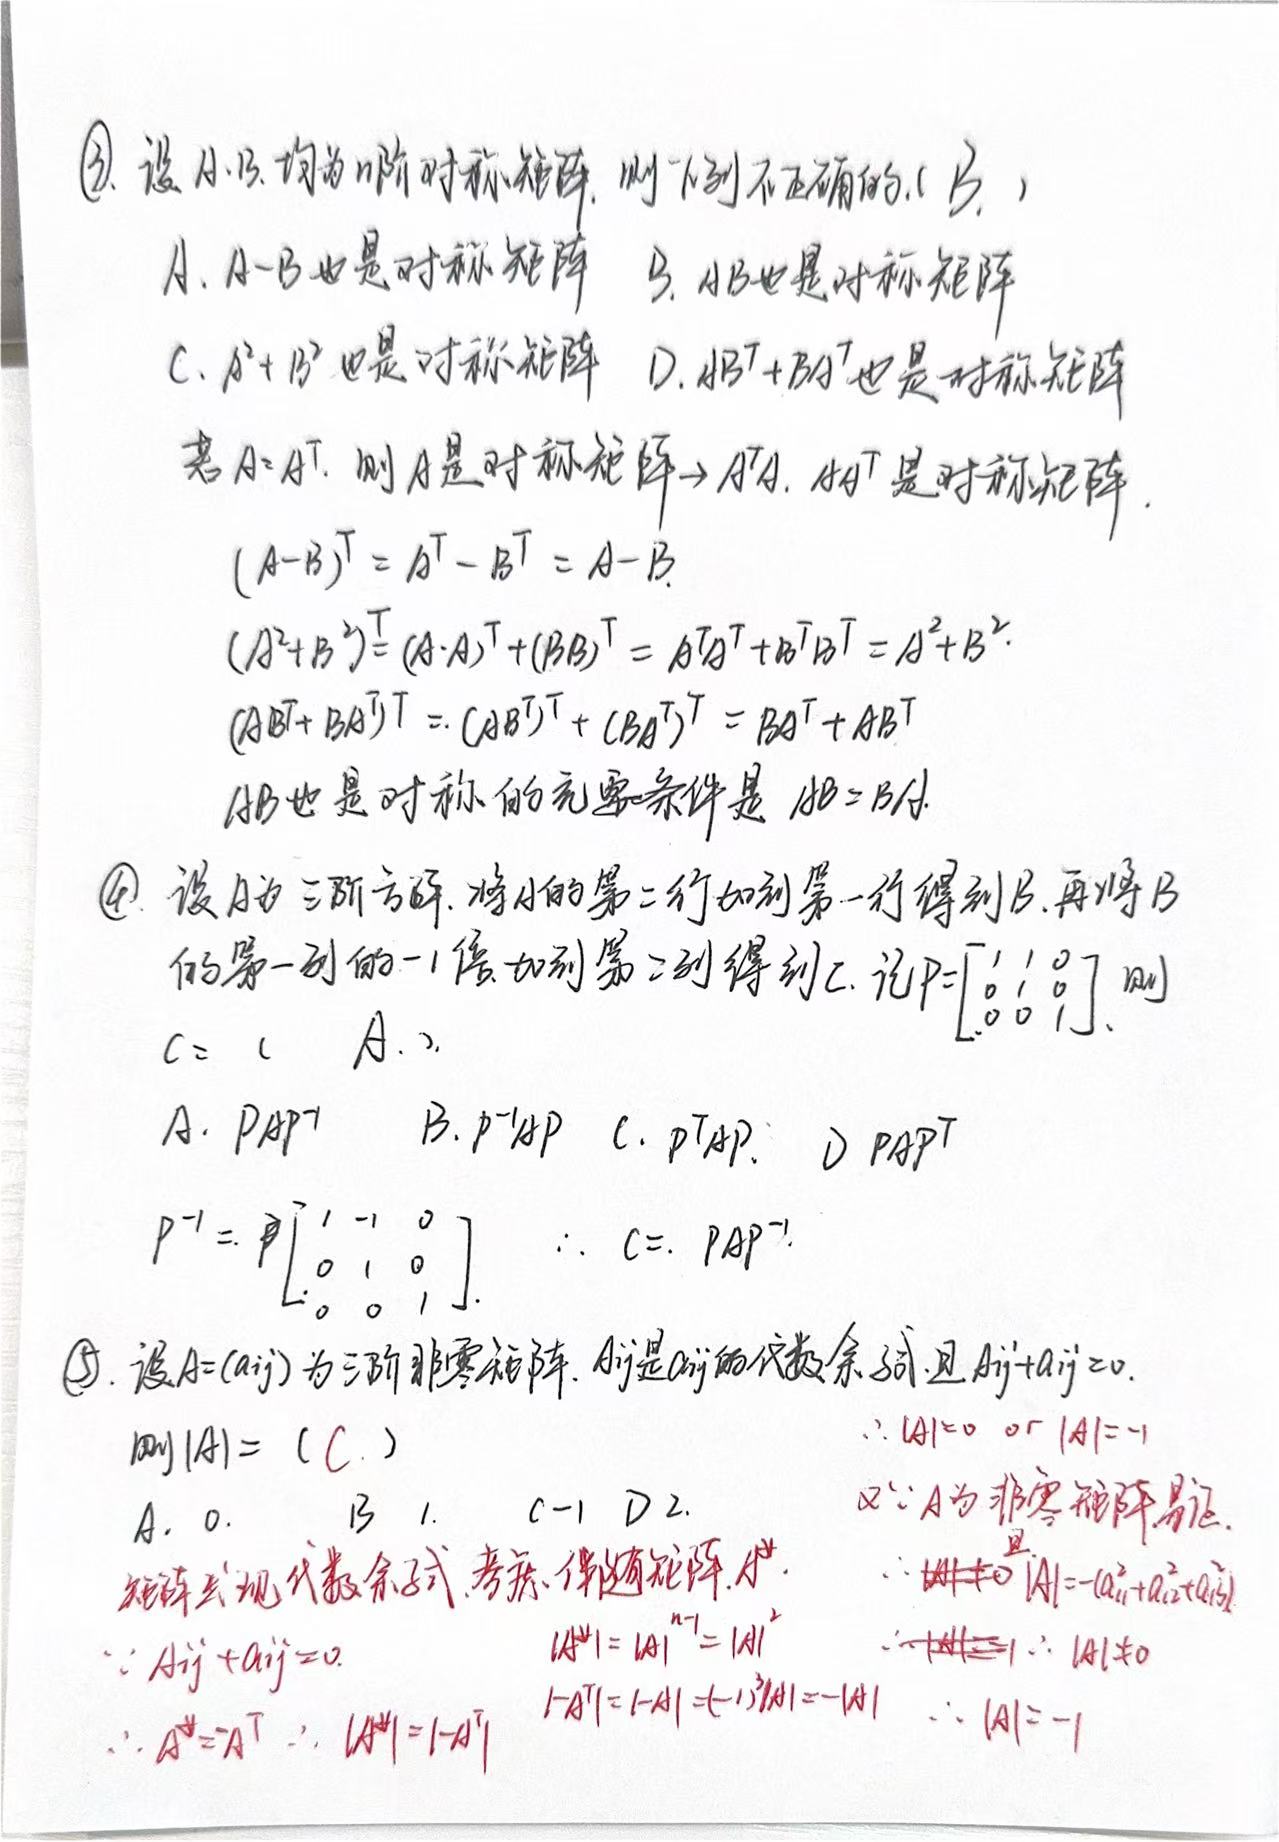 ③. 设A.B.均为n阶对称矩阵.则下列不正确的.( B. )
A. A-B也是对称矩阵 B. AB也是对称矩阵
C. A²+B²也是对称矩阵 D. ABᵀ+BAᵀ也是对称矩阵
若A=Aᵀ. 则A是对称矩阵→AᵀA. AAᵀ是对称矩阵.
(A-B)ᵀ = Aᵀ-Bᵀ = A-B.
(A²+B²)ᵀ= (A·A)ᵀ+(BB)ᵀ = AᵀAᵀ+BᵀBᵀ = A²+B².
(ABᵀ+BAᵀ)ᵀ = (ABᵀ)ᵀ + (BAᵀ)ᵀ = BAᵀ+ABᵀ
AB也是对称的充要条件是 AB=BA.
④. 设A为三阶方阵.将A的第二行加到第一行得到B.再将B
的第一列的-1倍加到第二列得到C. 记P=[1 1 0
0 1 0
0 0 1]. 则
C= ( A. ).
A. PAP⁻¹ B. P⁻¹AP C. PᵀAP. D PAPᵀ
P⁻¹ = [1 -1 0
0 1 0
0 0 1]. ∴ C= PAP⁻¹.
⑤. 设A=(aij)为三阶非零矩阵. Aij是aij的代数余子式.且Aij+aij=0.
则|A|= ( C. )
A. 0. B 1. C -1 D 2.
矩阵出现代数余子式.考虑.伴随矩阵.A*.
∵ Aij+aij=0.
∴ A*=-Aᵀ ∴ |A*|=|-Aᵀ|
|A*|=|A|ⁿ⁻¹=|A|²
|-Aᵀ|=|-A|=(-1)³|A|=-|A|
∴|A|=0 or |A|=-1
又∵A为非零矩阵.易证.
∴ 且|A|=-(ai1²+ai2²+ai3²)
∴ |A|≠0
∴ |A|=-1